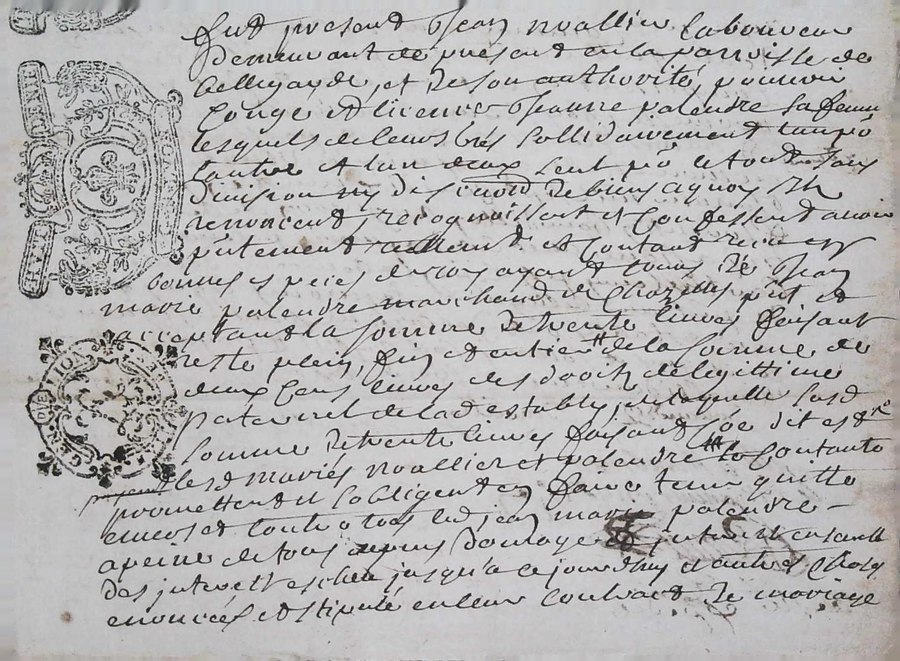 fut présent Jean noallier laboureur
demeurant de présent en la parroisse de
bellegarde, et de son authorité, pouvoir
Congé et licence Jeanne palendre sa femme
lesquels de leurs grés sollidairement tampõ
lautre et lun deux seul põ le tout sans
division ny discution de biens a quoy Ils
renoncent, recognoissent et Confessent avoir
pñtement réellement et Contant receu en
bonnes espèces de roy ayant cours de Jean
marie palendre marchand de pñt et
acceptant la somme de trente livres faisant
reste plein, fin et entier de la somme de
deux Cens livres des droits de legittime
paternel de lad establye, de laquelle susd
somme de trente livres faisant que dit est
lesd mariés noallier et palendre Contants
promettent et sobligent en faire tenir quitte
envers et contre tous led jean marie palendre
a peine de tous despens domage et interest ensemble
des interest escheu jusqu'a ce jourdhuy et autres Choses
enoncées et stipulé en leur contract de mariage
GEN DE LION